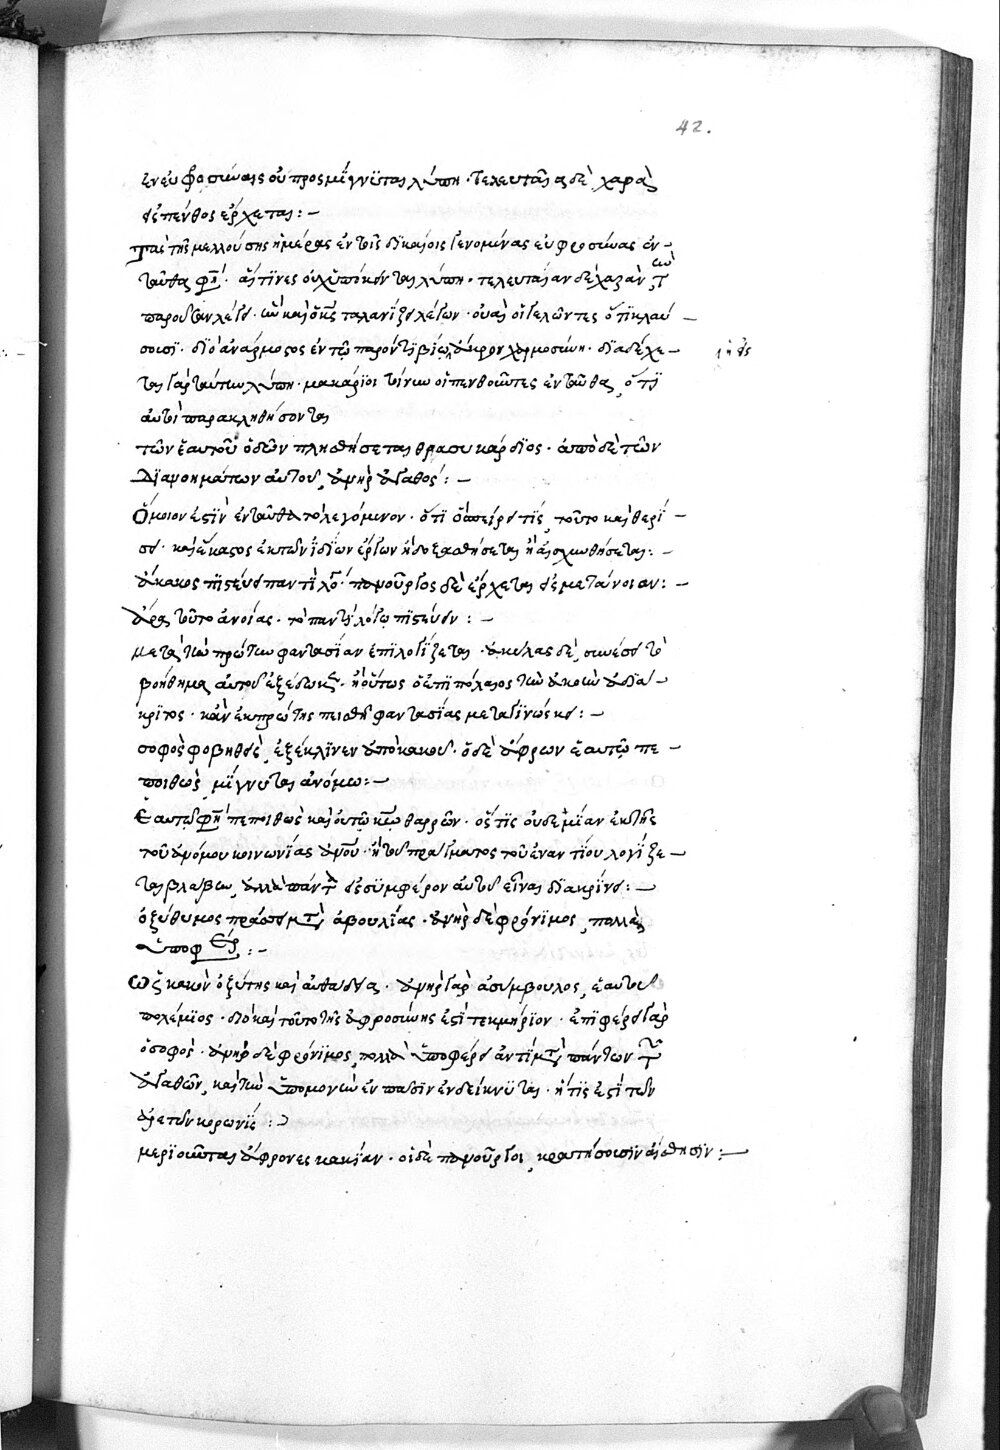 42.
ἐν εὐφροσύναις οὐ προσμίγνυται λύπη· τελευταία δὲ χαρὰ
εἰς πένθος ἔρχεται:—
Τὰς τῆς μελλούσης ἡμέρας ἐν τοῖς δικαίοις γενομένας εὐφροσύνας ἐν
ταῦθα φησί· αἵτινες οὐχ ὑπόκεινται λύπη· τελευταίαν δὲ χαρὰν, τὴν
παροῦσαν λέγει· οὐαὶ οἱ γελῶντες ὅτι κλαύ
σουσι· διὸ ἀνάρμοστος ἐν τῷ παρόντι βίῳ, διαδέχε
ται γὰρ ταύτην λύπη· μακάριοι τοίνυν οἱ πενθοῦντες ἐνταῦθα, ὅτι
αὐτοὶ παρακληθήσονται
τῶν ἑαυτοῦ ὁδῶν πλησθήσεται θρασυκάρδιος· ἀπὸ δὲ τῶν
διανοημάτων αὐτοῦ, ἀνὴρ ἀγαθός:—
Ὅμοιον ἐστὶν ἐνταῦθα τὸ λεγόμενον· ὅτι ὃ σπείρει τίς, τοῦτο καὶ θερί
σει· καὶ ἕκαστος ἐκ τῶν ἰδίων ἔργων ἢ δοξασθήσεται ἢ αἰσχυνθήσεται:—
ἄκακος πιστεύει παντὶ λόγῳ· πανοῦργος δὲ ἔρχεται εἰς μετάνοιαν:—
ἄρα τοῦτο ἀνοίας· τὸ παντὶ λόγῳ πιστεύειν:—
μετὰ τὴν πρώτην φαντασίαν ἐπιλογίζεται· ἀκύλας δὲ, συνέσει τὸ
βοήθημα αὐτοῦ ἐξέδωκεν· ἢ οὕτως ὁ ἐπιπόλαιος τὴν ἀκοὴν ἀδιά
κριτος· κἂν ἐκ πρώτης πεισθῇ φαντασίας μεταγινώσκει:—
σοφὸς φοβηθεὶς, ἐξέκλινεν ἀπὸ κακοῦ· ὁ δὲ ἄφρων ἑαυτῷ πε
ποιθὼς, μίγνυται ἀνόμῳ:—
Ἑαυτῷ φησὶ πεποιθὼς καὶ οὐ τῷ κυρίῳ θαρρῶν· ὅστις οὐδεμίαν ἐκ τῆς
τοῦ ἀνόμου κοινωνίας ἀνθρώπου· ἢ τοῦ πράγματος τοῦ ἐναντίου λογίζε
ται βλάβην, ἀλλὰ πάντα εἰς συμφέρον αὐτοῦ εἶναι διακρίνει:—
ὀξύθυμος πράσσει μετὰ ἀβουλίας· ἀνὴρ δὲ φρόνιμος, πολλὰ
ὑποφέρει:—
Ὡς κακὸν ὀξύτης καὶ αὐθάδεια· ἀνὴρ γὰρ ἀσύμβουλος, ἑαυτοῦ
πολέμιος· διὸ καὶ τοῦτο τῆς ἀφροσύνης ἐστὶ τεκμήριον· ἐπιφέρει γὰρ
ὁ σοφός· ἀνὴρ δὲ φρόνιμος, πολλὰ ὑποφέρει ἀντὶ μετὰ πάντων τῶν
ἀγαθῶν, καὶ τὴν ὑπομονὴν ἐν πᾶσιν ἐνδείκνυται· ἥτις ἐστὶ τῶν
ἀρετῶν κορωνίς:—
μεριοῦνται ἄφρονες κακίαν· οἱ δὲ πανοῦργοι, κρατήσουσιν αἰσθήσιν:—